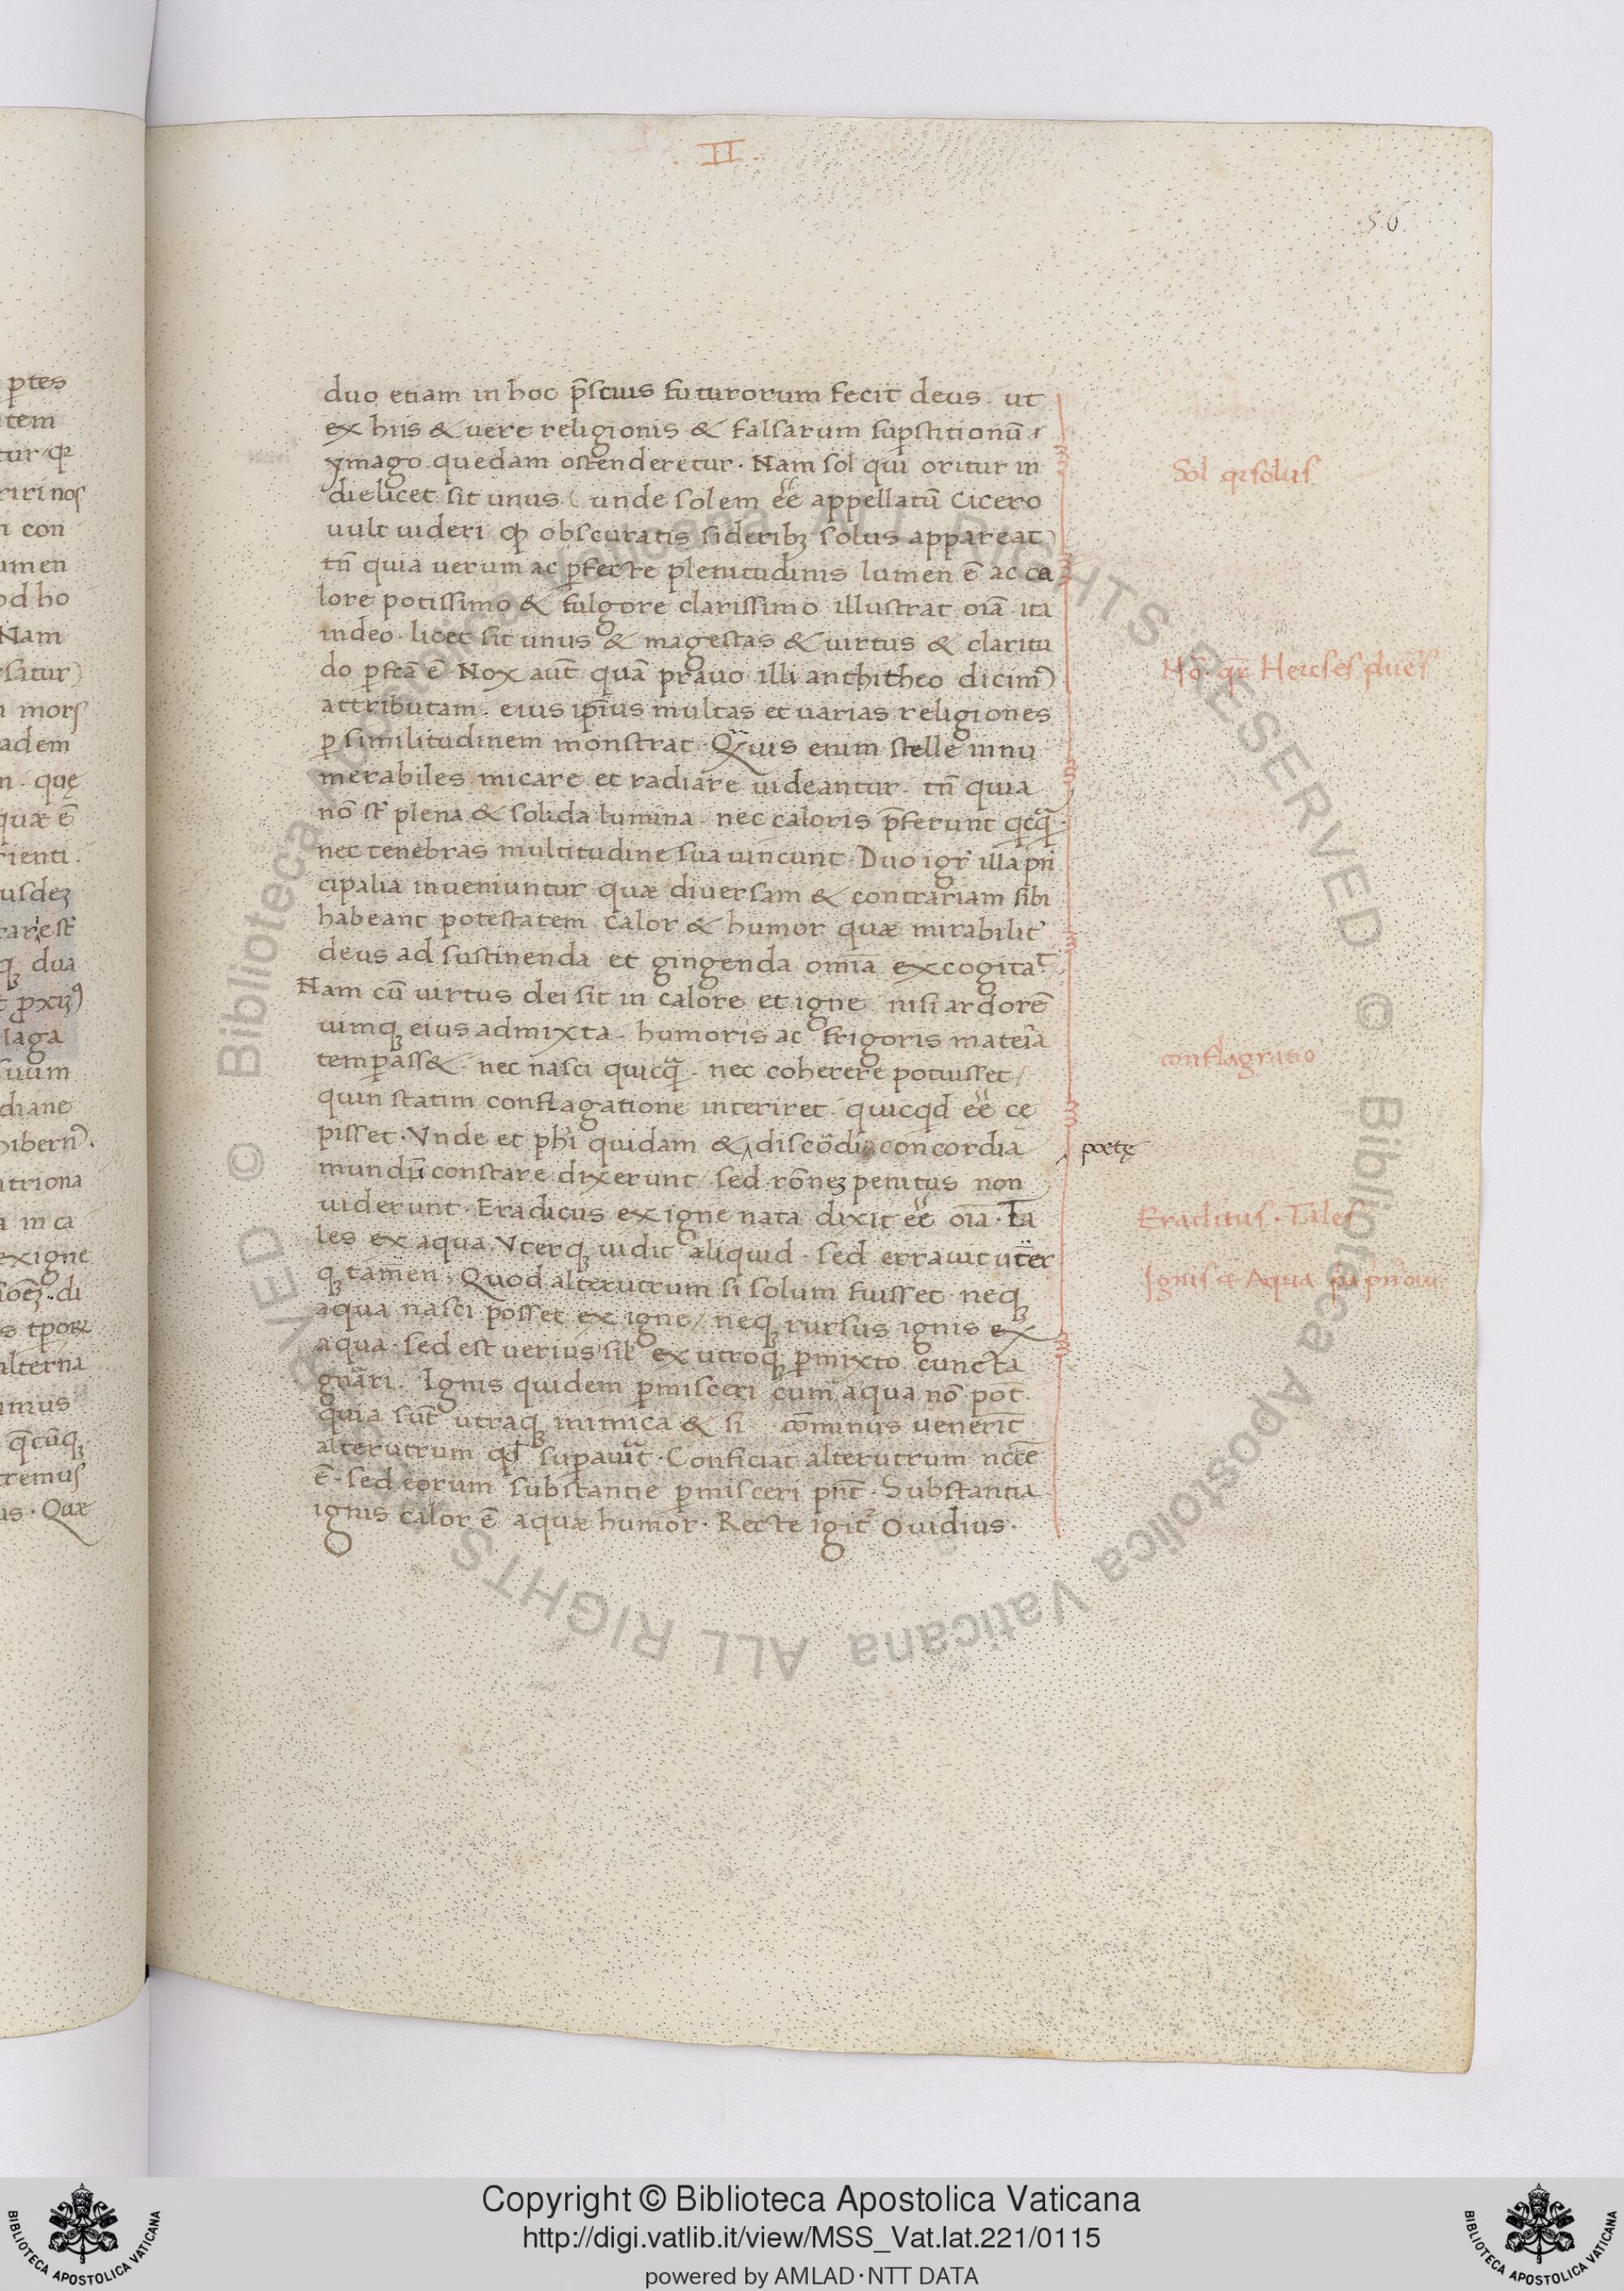 .II.
.56.
duo etiam in hoc p̄scius futurorum fecit deus. ut
ex hiis & uere religionis & falsarum sup̄stitionū
ymago quedam ostenderetur. Nam sol qui oritur in
die licet sit unus (unde solem ee͂ appellatū Cicero
uult uideri qꝫ obscuratis sideribꝫ solus appareat)
tn̄ quia uerum ac ꝑfecte plenitudinis lumen ē ac ca
lore potissimo & fulgore clarissimo illustrat oīā ita
in deo. licet sit unus & magestas & uirtus & claritu
do ꝑfcā ē. Nox aūt quā prauo illi anthitheo dicimꝰ
attributam. eius ip̄ius multas et uarias religiones
ꝑ similitudinem monstrat. Qᷓuis enim stelle innu
merabiles micare et radiare uideantur. tn̄ quia
nō st̄ plena & solida lumina. nec caloris p̄ferunt qͥcqᷓ.
nec tenebras multitudine sua uincunt. Duo igr̄ illa pn̄
cipalia inueniuntur quæ diuersam & contrariam sibi
habeant potestatem. calor & humor quæ mirabilit̾
deus ad sustinenda et gingenda omīa excogitaᵗ.
Nam cū uirtus dei sit in calore et igne nisi ardorē
uimqꝫ eius admixta. humoris ac frigoris materīa
temꝑass&. nec nasci quicqᷓ. nec coherere potuisset/
quin statim conflagatione interiret. quicqd ee͂ cę
pisset. Vnde et phī quidam &‸discōdi concordia
poetę
mundū constare dixerunt/ sed rōneꝫ penitus non
uiderunt. Eraclitus ex igne nata dixit ee͂ oīa. Ta
les ex aqua. Vterqꝫ uidit aliquid. sed errauit uter
qꝫ tamen. Quod alterutrum si solum fuisset. neqꝫ
aqua nasci posset ex igne/ neqꝫ rursus ignis ex
aqua. sed est uerius sil̄ ex utroqꝫ ꝑmixto cuncta
gnāri. Ignis quidem ꝑmisceri cum aqua nō pot̄.
quia sūt utraqꝫ inimica & si cōminus uenerit
alterutrum qd̄ supauīt. Conficiat alterutrum nccē
ē. sed eorum substantie ꝑmisceri pn̄t. Substantia
ignis calor ē aquæ humor. Recte igit̾ Ouidius.
Sol qͥ solus
conflagratio
Eraclitus. Tales
Ignis & Aqua
Copyright © Biblioteca Apostolica Vaticana
http://digi.vatlib.it/view/MSS_Vat.lat.221/0115
powered by AMLAD·NTT DATA